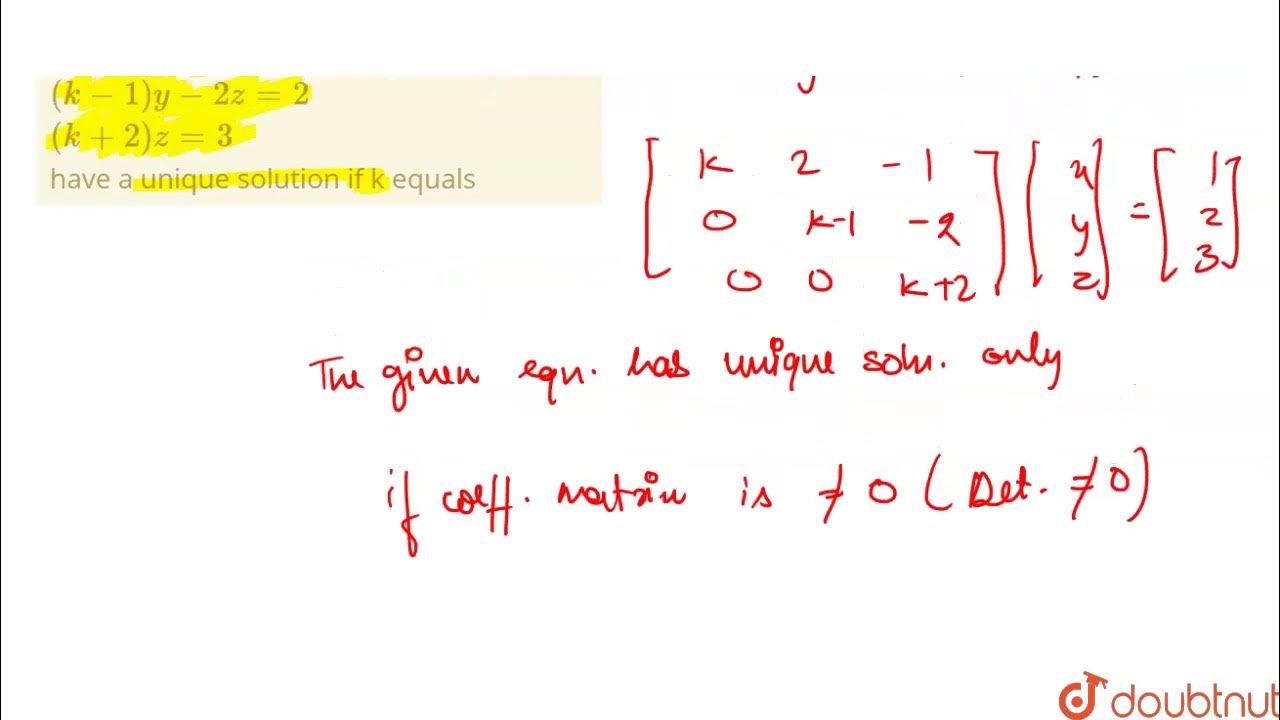 (k − 1)y − 2z = 2
(k + 2)z = 3
have a unique solution if k equals
y
[ k 2 -1 ] [ x ] = [ 1 ]
[ 0 k-1 -2 ] [ y ] [ 2 ]
[ 0 0 k+2 ] [ z ] [ 3 ]
The given eqn. has unique soln. only
if coeff. matrix is ≠ 0 (Det. ≠ 0)
doubtnut